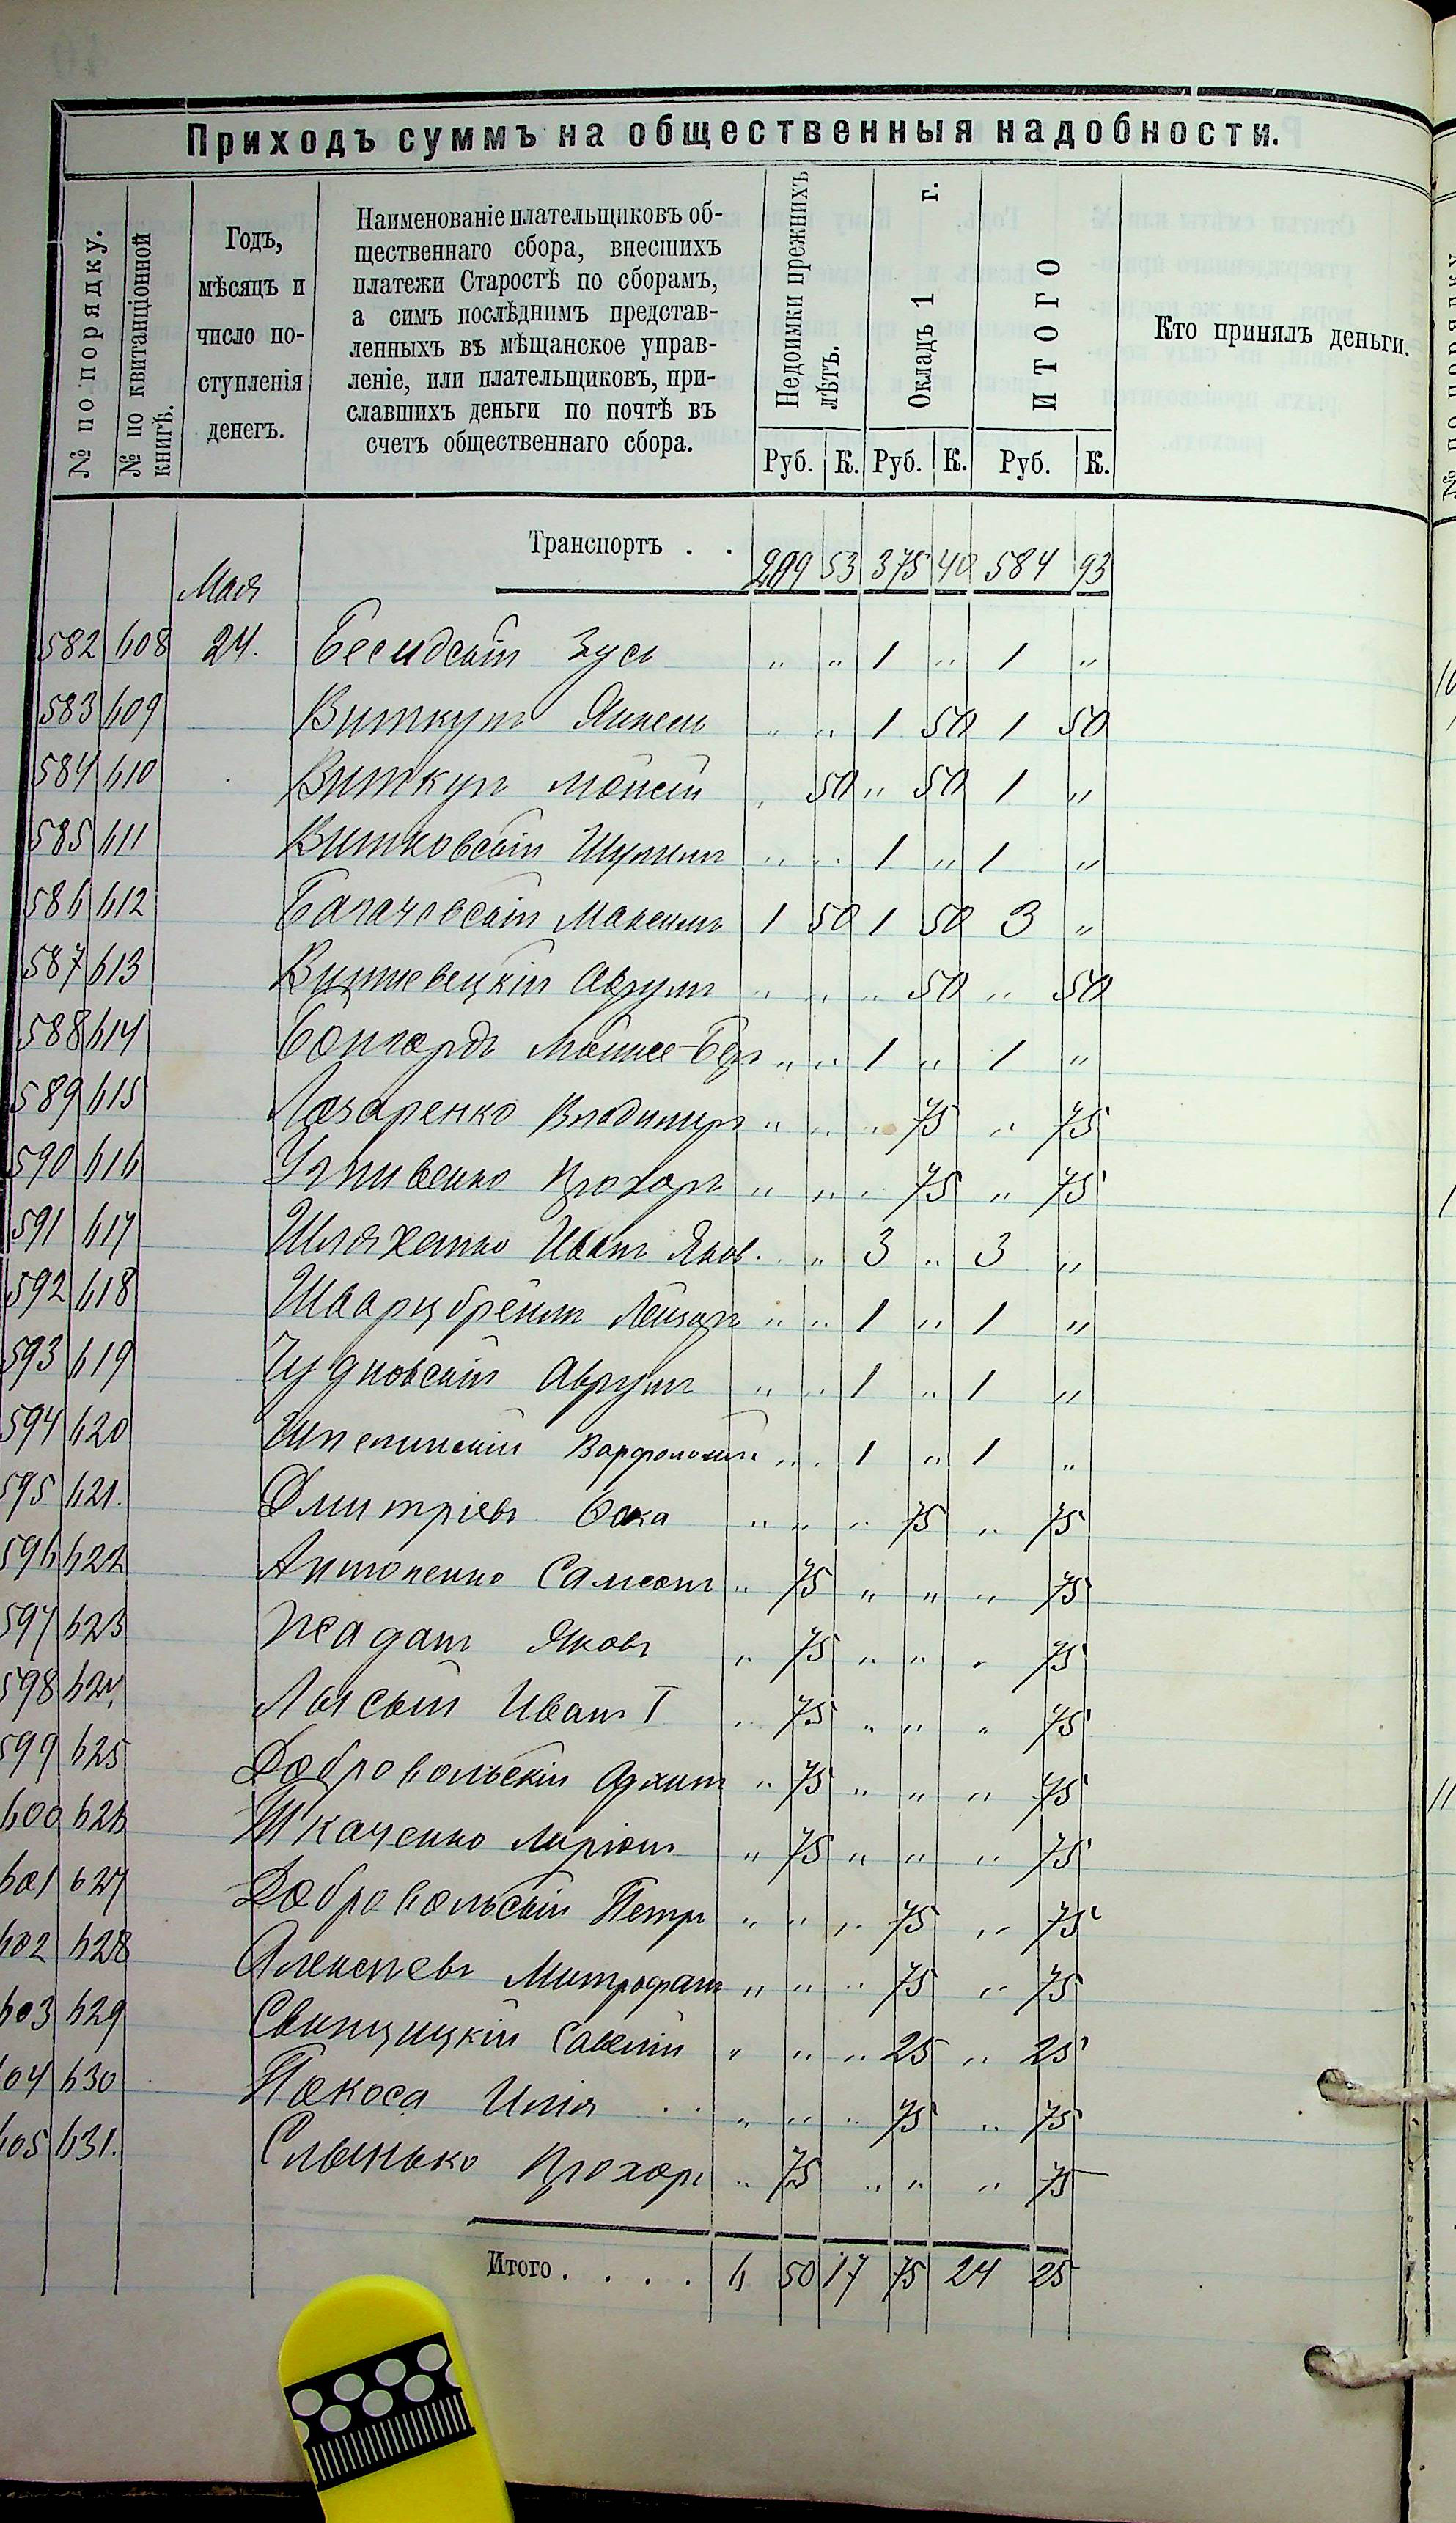 Приходъ суммъ на общественныя надобности.
№ по порядку.
№ по квитанціонной книгѣ.
Годъ,
мѣсяцъ и
число по-
ступленія
денегъ.
Наименованіе плательщиковъ об-
щественнаго сбора, внесшихъ
платежи Старостѣ по сборамъ,
а симъ послѣднимъ представ-
ленныхъ въ мѣщанское управ-
леніе, или плательщиковъ, при-
славшихъ деньги по почтѣ въ
счетъ общественнаго сбора.
Недоимки прежнихъ лѣтъ.
Окладъ 1 г.
ИТОГО
Кто принялъ деньги.
Руб. К. Руб. К. Руб. К.
Транспортъ . . 209 53 375 40 584 93
Мая
582 608 24. Бесидскій Зусь " " 1 " 1 "
583 609 Виткупъ Янкель " " 1 50 1 50
584 610 Виткупъ Мойсей " 50 " 50 1 "
585 611 Витковскій Шулимъ " " 1 " 1 "
586 612 Багачевскій Максимъ 1 50 1 50 3 "
587 613 Аврумъ " " " 50 " 50
588 614 Бонгардъ Мошко-Беръ " " 1 " 1 "
589 615 Лазаренко Владимиръ " " " 75 " 75
590 616 Прохоръ " " " 75 " 75
591 617 Шляхетко Иванъ Яков. " " 3 " 3 "
592 618 Шварцбреймъ Лейзоръ " " 1 " 1 "
593 619 Чудновскій Аврумъ " " 1 " 1 "
594 620 Варфоломей " " 1 " 1 "
595 621. Дмитріевъ Фока " " " 75 " 75
596 622 Антоненко Самсонъ " 75 " " " 75
597 623 Жаданъ Яковъ " 75 " " " 75
598 624. Лысый Иванъ I " 75 " " " 75
599 625 Добровольскій Архипъ " 75 " " " 75
600 626 Ткаченко Ларіонъ " 75 " " " 75
601 627 Добровольскій Петръ " " " 75 " 75
602 628 Алексѣевъ Митрофанъ " " " 75 " 75
603 629 Свинцицкій Савелій " " " 25 " 25
604 630 Покоса Илія " " " 75 " 75
605 631. Слынько Прохоръ " 75 " " " 75
Итого . . . . 6 50 17 75 24 25